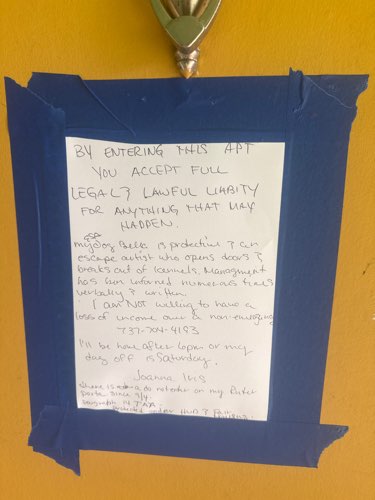 BY ENTERING THIS APT
YOU ACCEPT FULL
LEGAL & LAWFUL LIABITY
FOR ANYTHING THAT MAY
HAPPEN.
my dog Belle is protective & an
escape artist who opens doors &
breaks out of kennels. Managment
has been informed numerous times
verbally & written.
I am NOT willing to have a
loss of income over a non-emergency
737-704-4193
I'll be home after 6pm or my
day off is Saturday.
Joanna Ivis
there is a do not enter on my
portal since
under HUD &